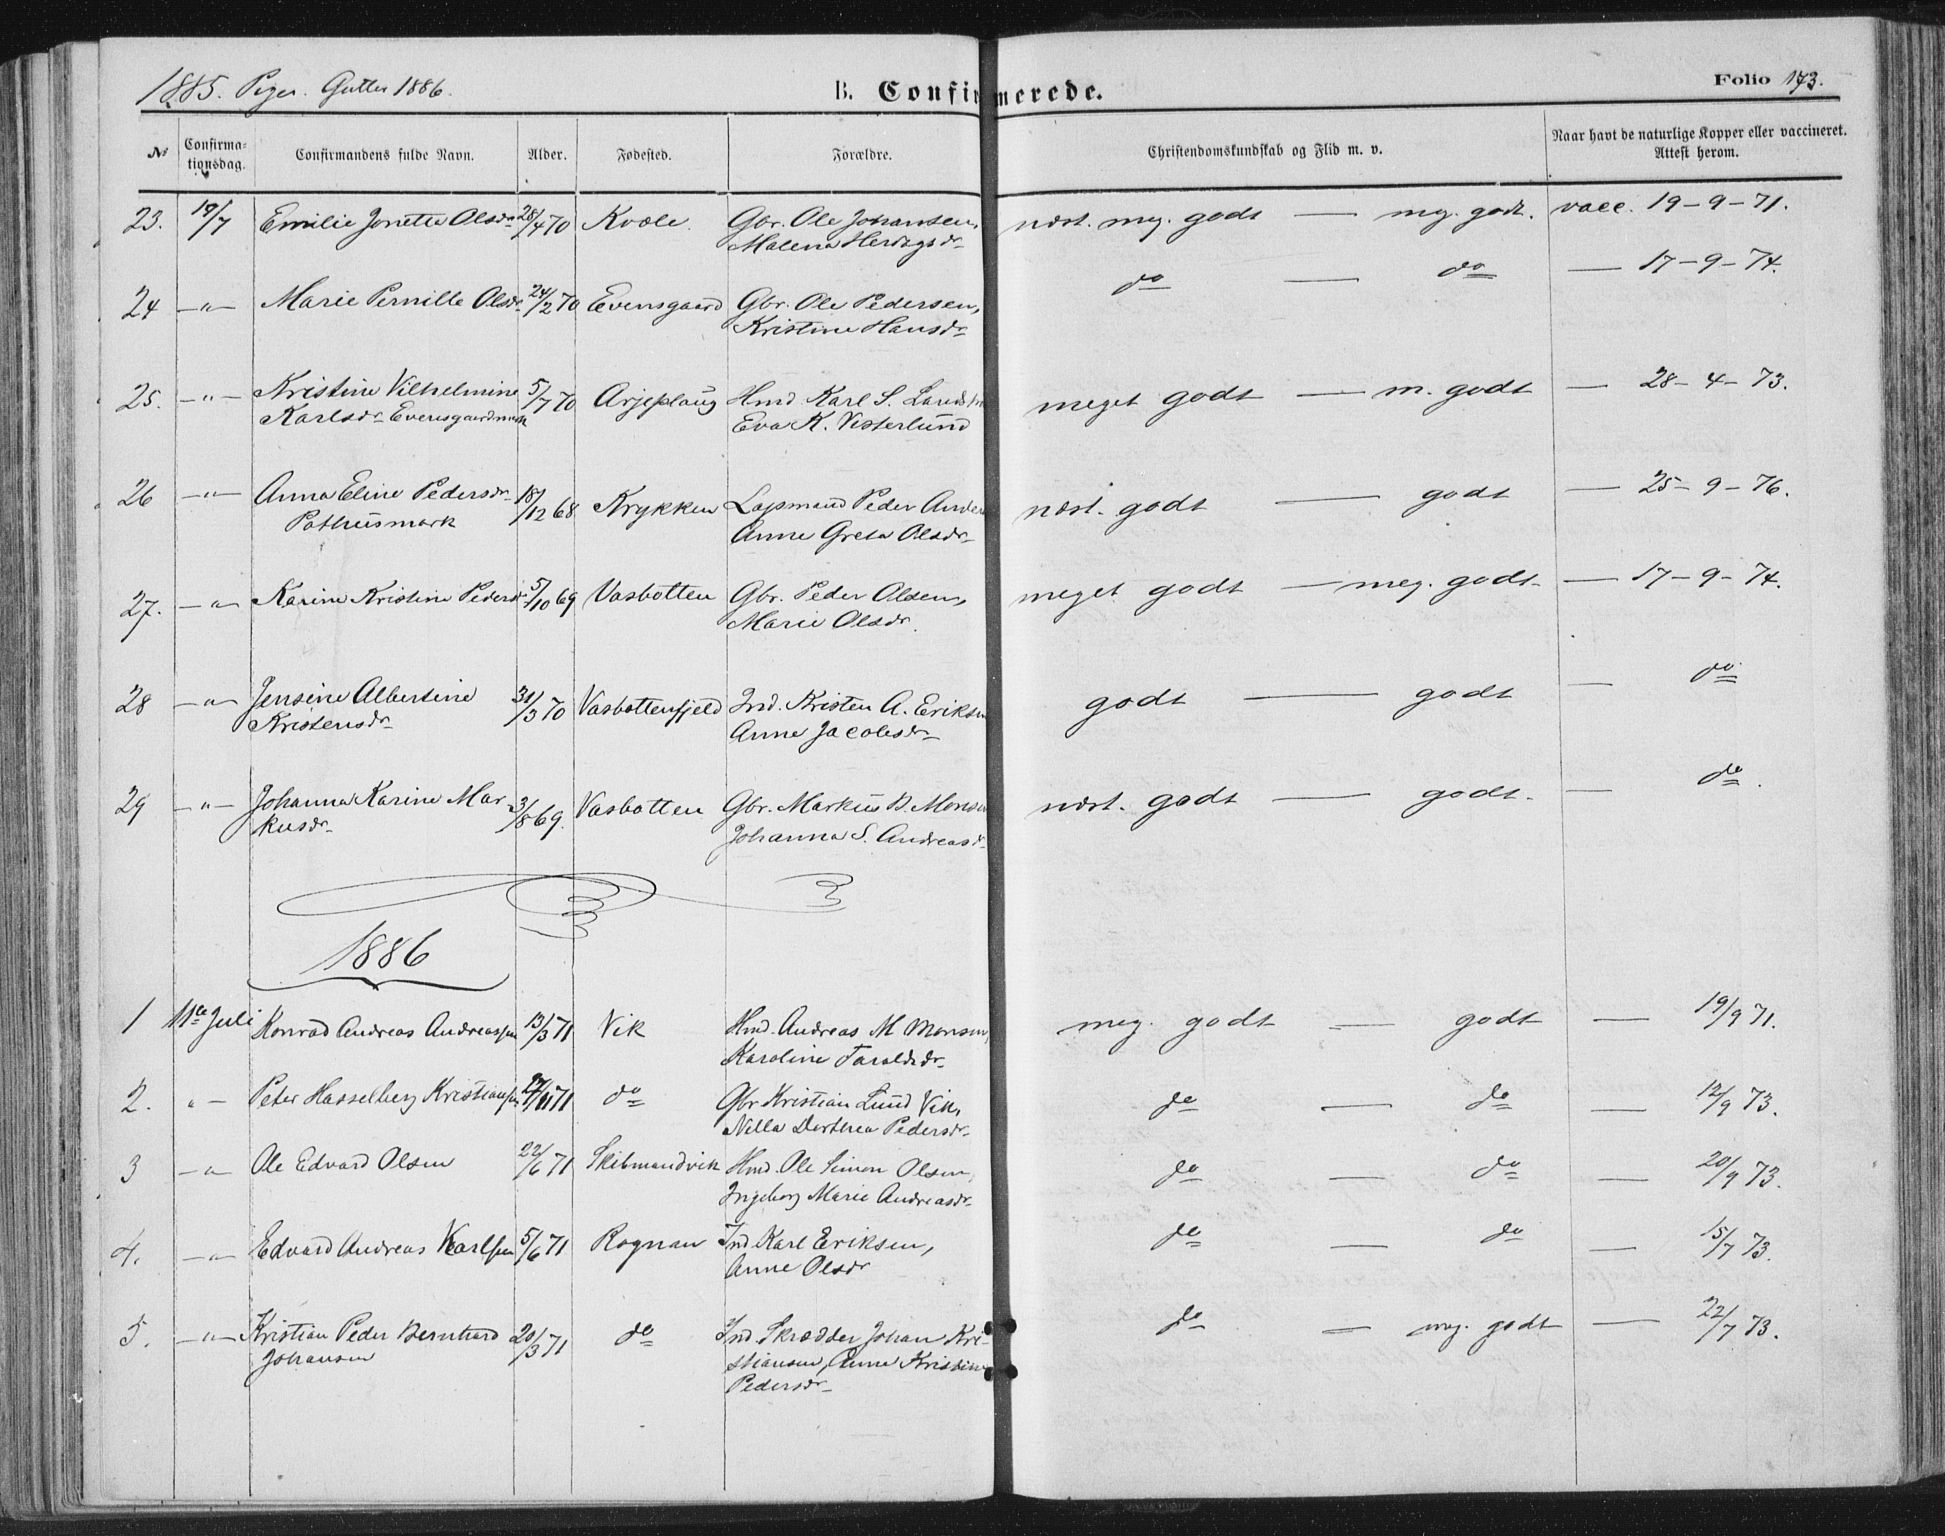 1885. Piger. Gutter 1886.
B. Confirmerede.
Folio 173.
No
Confirma-
tionsdag.
Confirmandens fulde Navn.
Alder.
Fødested.
Forældre.
Christendomskundskab og Flid m. v.
Naar havt de naturlige Kopper eller vaccineret.
Attest herom.
23. 19/7 Emilie Jonette Olsdr 28/4 70 Kvæle. Gbr. Ole Johansen, næst. meg. godt — meg. godt. vacc. 19-9-71.
Malena Herdagsdr
24 —"— Marie Pernille Olsdr 24/2 70 Evensgaard Gbr. Ole Pedersen, do — do — 17-9-74.
Kristine Hansdr
25. —"— Kristine Vilhelmine 5/7 70 Arjeplaug Hmd Karl S. meget godt — m. godt — 28-4-73.
Karlsdr Evensgaardmark Eva K. Vesterlund
26 —"— Anna Eline Pedersdr 18/12 68 Krykken Lapmand Peder næst. godt — godt — 25-9-76.
Pothusmark Anne Greta Olsdr
27. —"— Karine Kristine Pedersdr 5/10 69 Vasbotten Gbr. Peder Olsen, meget godt — meg. godt — 17-9-74.
Marie Olsdr.
28 —"— Jensine Albertine 31/3 70 Vasbottenfjeld Ind. Kristen A. Eriksen godt — godt — do
Kristensdr Anne Jacobsdr
29 —"— Johanna Karine Mar- 3/8 69. Vasbotten Gbr. Markus B. Monsen næst. godt — godt. — do.
kusdr Johanna S. Andreasdr
1886
1 11te Juli Konrad Andreas Andreassen 13/3 71 Vik Hmd. Andreas M Monsen, meg. godt — godt — 19/9 71.
Karoline Taraldsdr
2. "— Peter Hasselberg Kristiansen 71 do Gbr Kristian Lund Vik, do — do — 12/9 73.
Nella Dorthea Pedersdr
3 —"— Ole Edvard Olsen 22/6 71 Skibmandvik Hmd. Ole Simon Olsen, do — do — 20/9 73.
Ingeborg Marie Andreasdr
4. —"— Edvard Andreas Karlsen 5/6 71 Rognan Ind Karl Eriksen, do — do — 15/7 73.
Anne Olsdr
5. —"— Kristian Peder Bernhard 20/3 71 do Ind. Skrædder Johan Kri- do — meg. godt — 22/7 73.
Johansen stiansen, Anne Kristine
Pedersdr